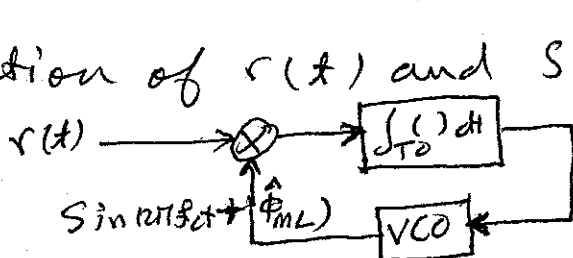 tion of r(t) and S
r(t)
∫T0 ( ) dt
Sin(2πfct + φ̂ML)
VCO